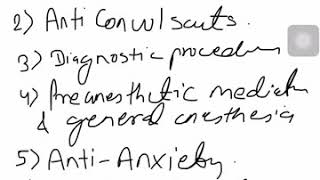 2) Anti Convulsants.
3) Diagnostic procedures
4) Preanesthetic medicatn
& general anesthesia
5) Anti-Anxiety.